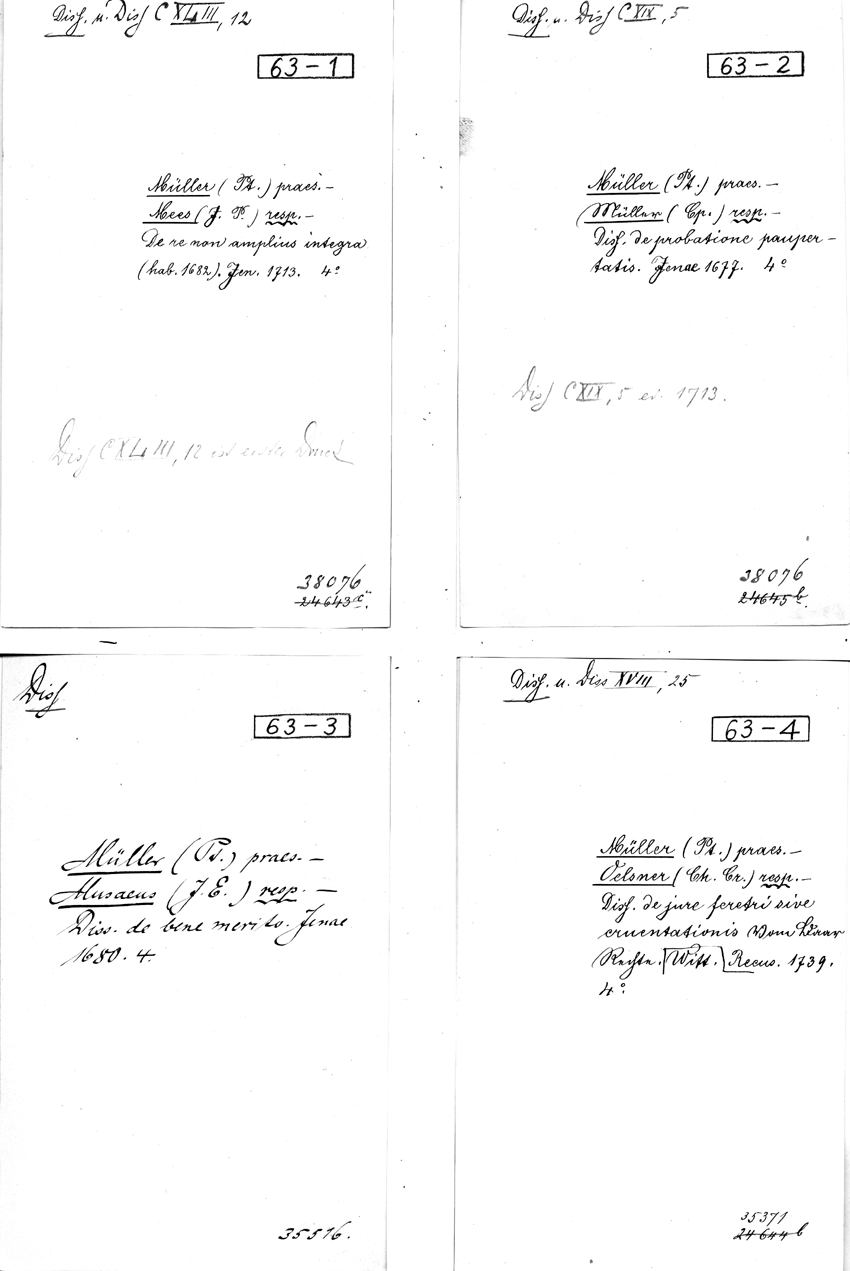 Diss. u. Diss C XLIII, 12
63-1
Müller (Pt.) praes.-
Mees (J. P.) resp.-
De re non amplius integra
(hab. 1682). Jen. 1713. 4°
Diss C XLIII, 12 ist erster Druck
38076
24643 c.
Diss. u. Diss C XIX, 5
63-2
Müller (Pt.) praes.-
(Müller (Cp.) resp.-
Diss. de probatione pauper-
tatis. Jenae 1677. 4°
Diss C XIX, 5 ed. 1713.
38076
24645 b.
Diss
63-3
Müller (Pt.) praes.-
Musaeus (J. E.) resp.-
Diss. de bene merito. Jenae
1680. 4.
35516.
Diss. u. Diss XVIII, 25
63-4
Müller (Pt.) praes.-
Oelsner (Ch. Cr.) resp.-
Diss. de jure feretri sive
cruentationis Vom Baar
Rechte. Witt. Recus. 1739.
4°.
35371
24644 b